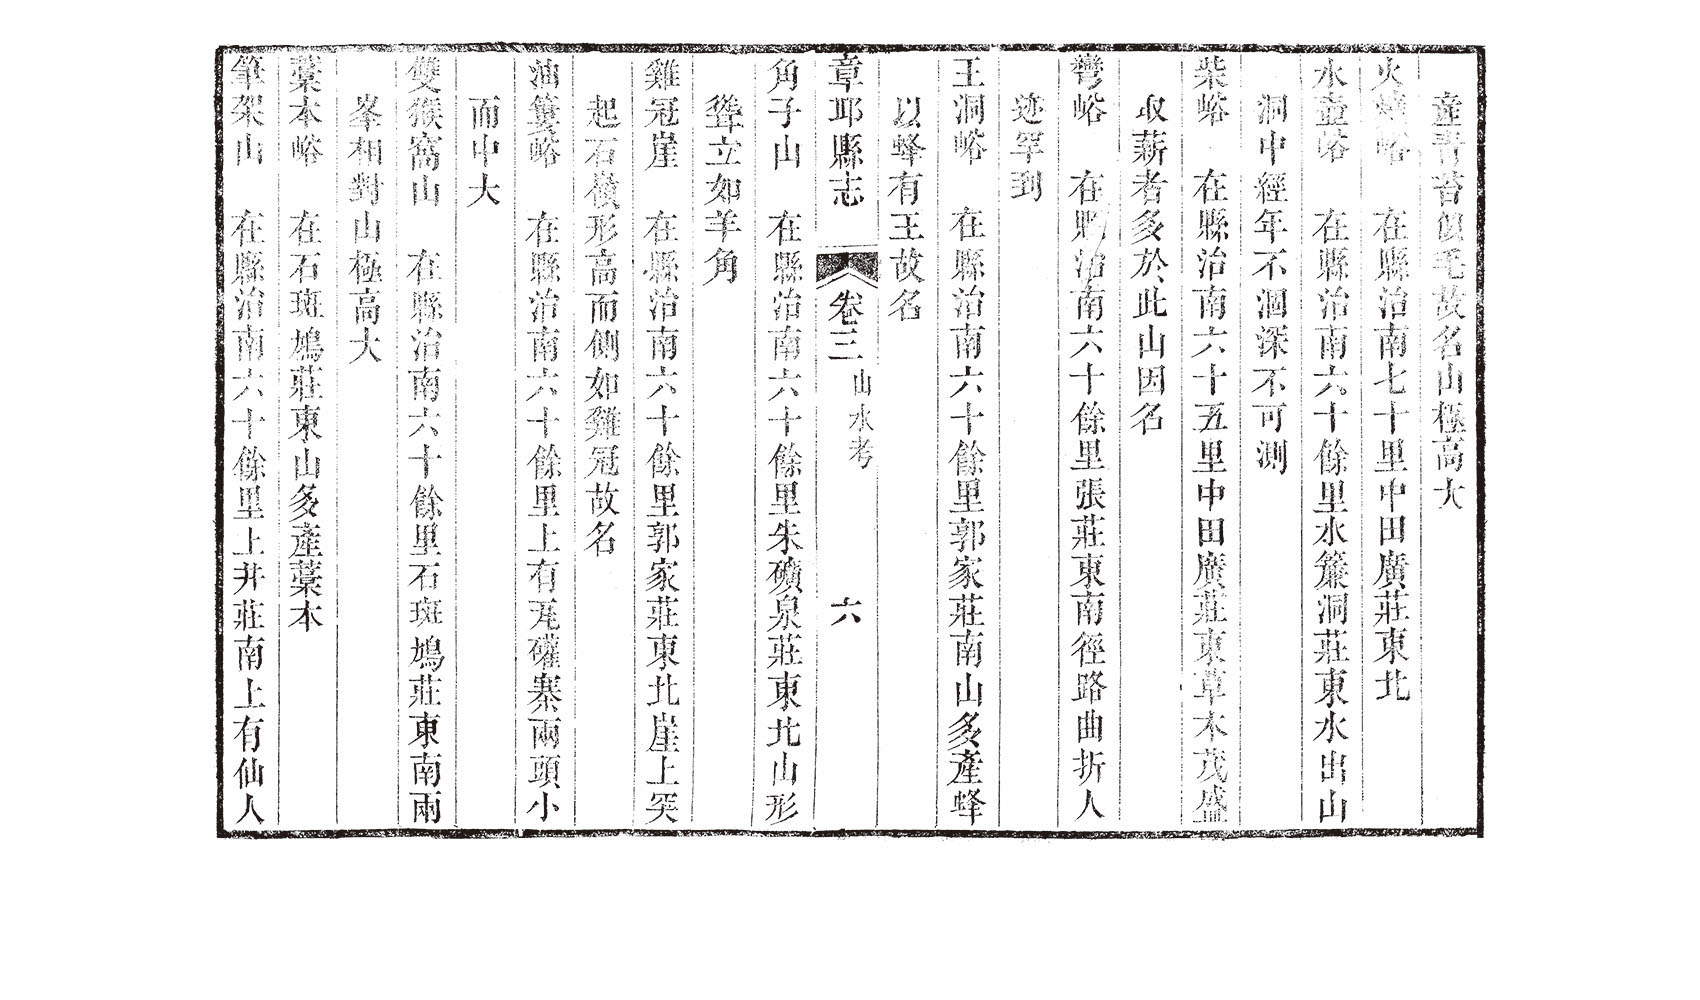 產青苔似毛故名山極高大
火爐峪 在縣治南七十里中田廣莊東北
水壺峪 在縣治南六十餘里水簾洞莊東水出山
洞中經年不涸深不可測
柴峪 在縣治南六十五里中田廣莊東草木茂盛
取薪者多於此山因名
彎峪 在縣治南六十餘里張莊東南徑路曲折人
迹罕到
王洞峪 在縣治南六十餘里郭家莊南山多產蜂
以蜂有王故名
章邱縣志 卷三 山水考 六
角子山 在縣治南六十餘里朱礦泉莊東北山形
聳立如羊角
雞冠崖 在縣治南六十餘里郭家莊東北崖上突
起石嶺形高而側如雞冠故名
油簍峪 在縣治南六十餘里上有寨兩頭小
而中大
雙猴窩山 在縣治南六十餘里石斑鳩莊東南兩
峯相對山極高大
藁本峪 在石斑鳩莊東山多產藁本
筆架山 在縣治南六十餘里上井莊南上有仙人